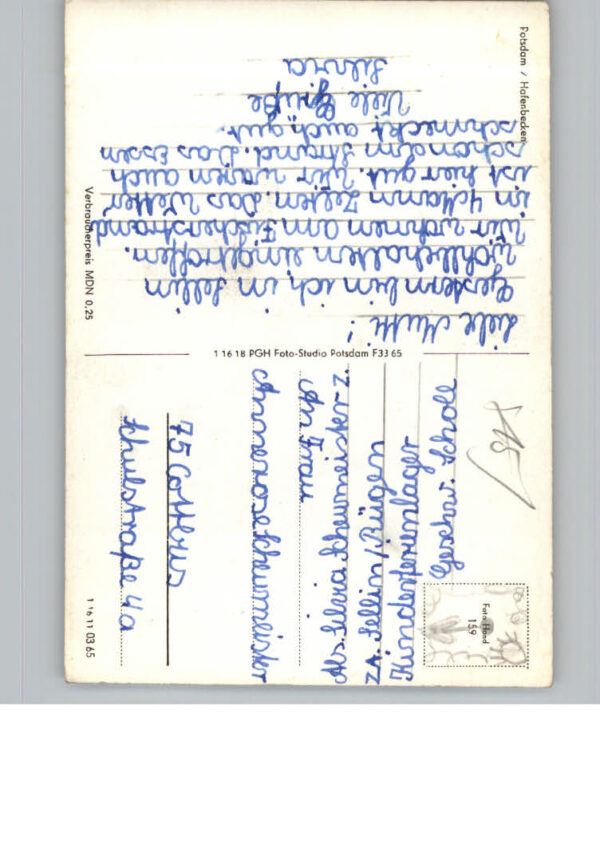 Potsdam / Hafenbecken
Liebe Mutti!
Gestern bin ich in Sellin
wohlbehalten eingetroffen.
Wir wohnen am Fischerstrand
in 4 Mann Zelten. Das Wetter
ist hier gut. Wir waren auch
schon am Strand. Das Essen
schmeckt auch gut.
Viele Grüße
Silvia
Verbraucherpreis MDN 0,25
1 16 18 PGH Foto-Studio Potsdam F33 65
Foto Hand
159
Geschw. Scholl
Kinderferienlager
ZA. Sellin/Rügen
Abs. Silvia Scheumeister z.
An Frau
Annerose Scheumeister
75 Cottbus
Schulstraße 4a
1 16 11 03 65